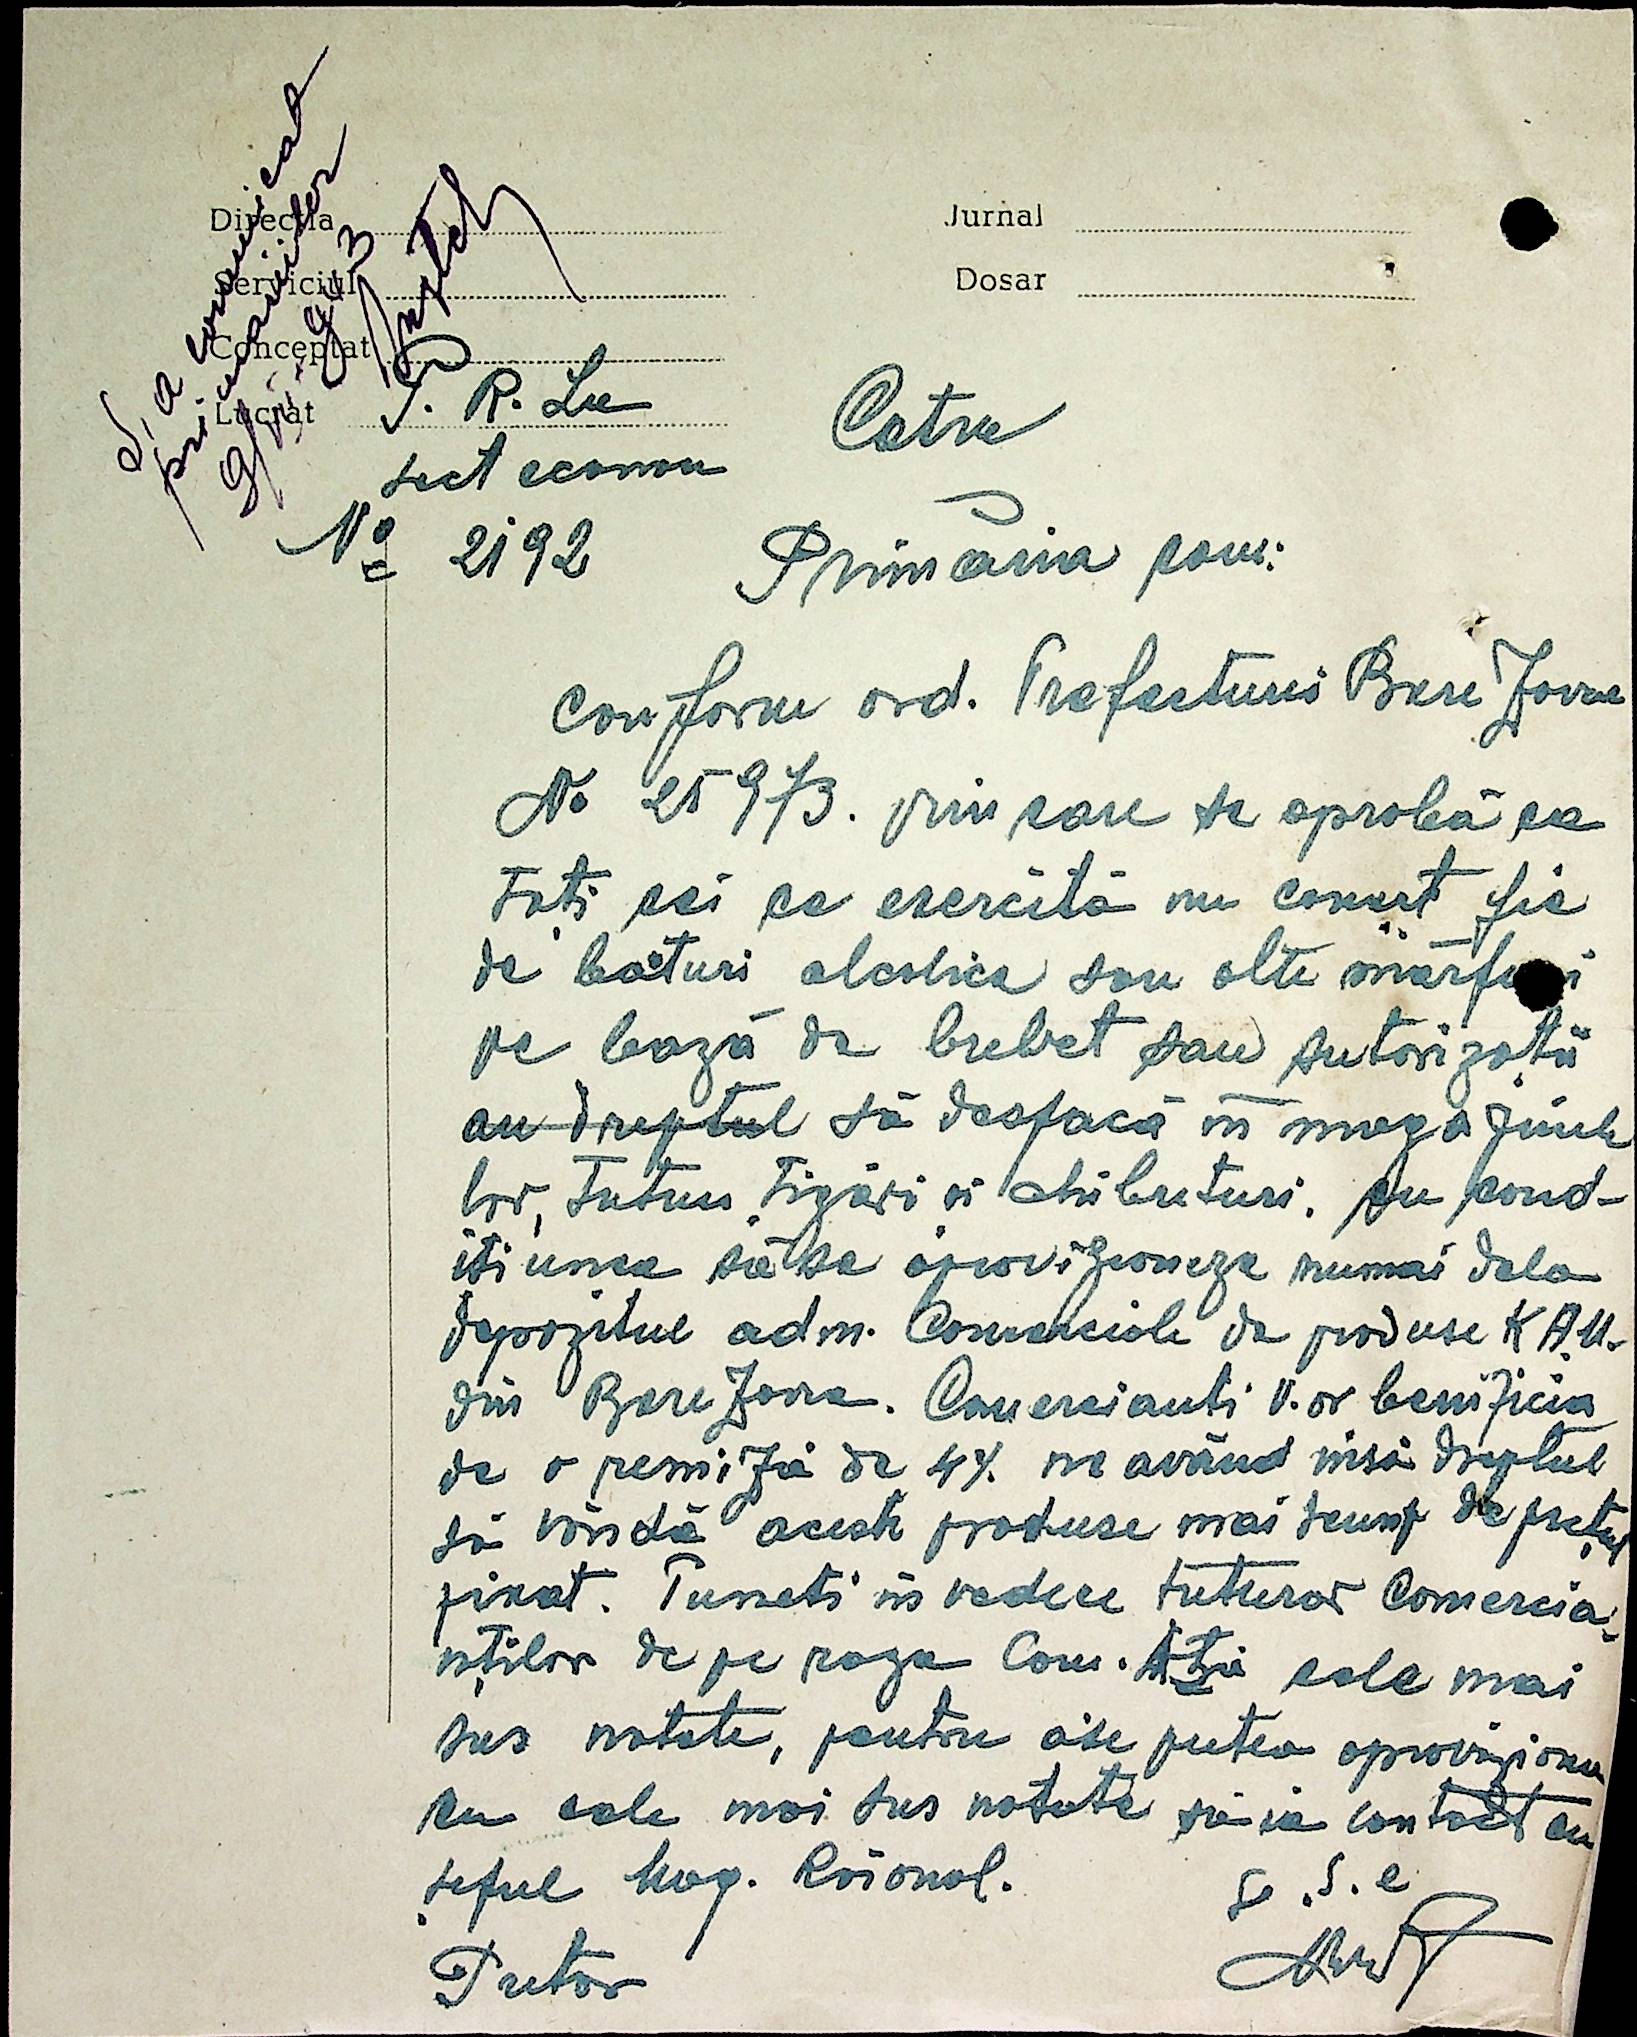 S'a comunicat
primariilor
9/VI. 943
Directia
Serviciul
Conceptat
Lucrat
Jurnal
Dosar
P. R. Lu
sect econom
No 2192
Catre
Primăria com:
conform ord. Prefecturei Berezovca
No 25973. prin care se aprobă ca
toți cei ce exercită un comerț fie
de băuturi alcolice sau alte mărfuri
pe bază de brebet sau autorizată
au dreptul să desfacă în magazinele
lor, tutun țigări si chibrituri, cu cond-
ițiunea să se aprovizioneze numai dela
depozitul adm. Comerciale de produse K.A.M.
din Berezovca. Comercianti vor benificia
de o remiză de 4% ne având însă dreptul
să vândă aceste produse mai scump de prețul
fixat. Puneti in vedere tuturor Comercia-
nților de pe raza Com. cele mai
sus notate, pentru ase putea aproviziona
cu cele mai sus notate să ia contact cu
șeful Mag. Raional.
Pretor
S. S. e